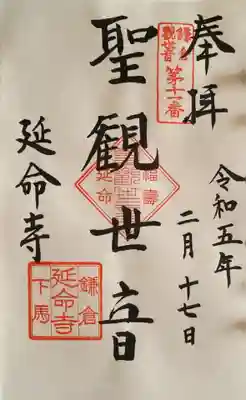 奉拝
令和五年
二月十七日
鎌倉
観音
第十一番
聖観世音
福壽
延命
延命寺
鎌倉
延命寺
下馬